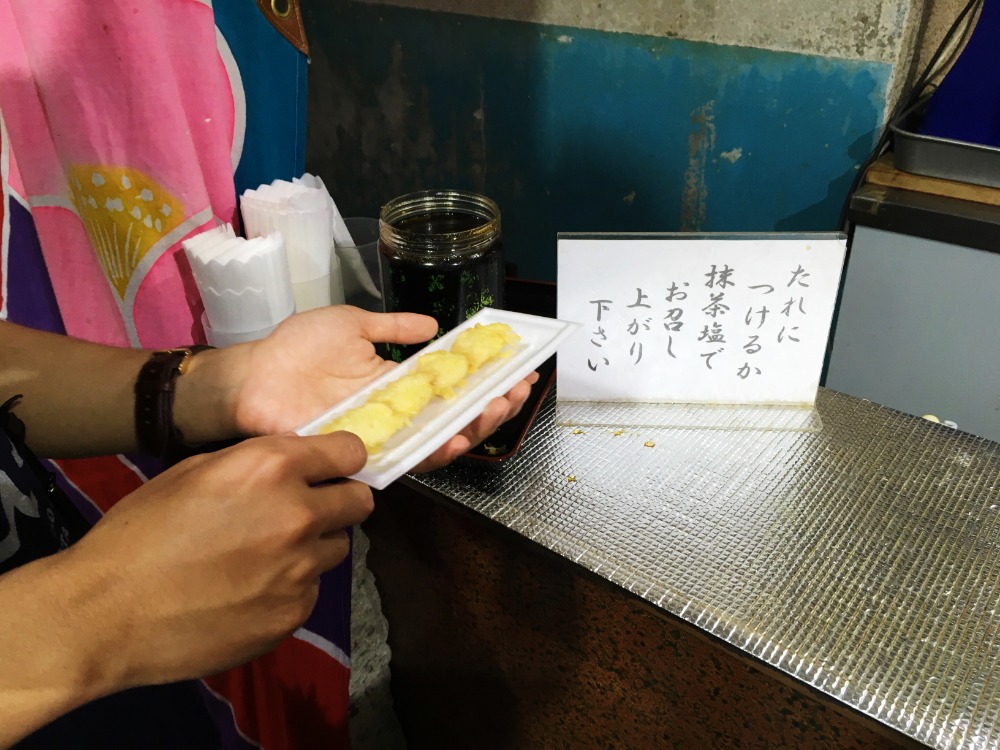 たれに
つけるか
抹茶塩で
お召し
上がり
下さい